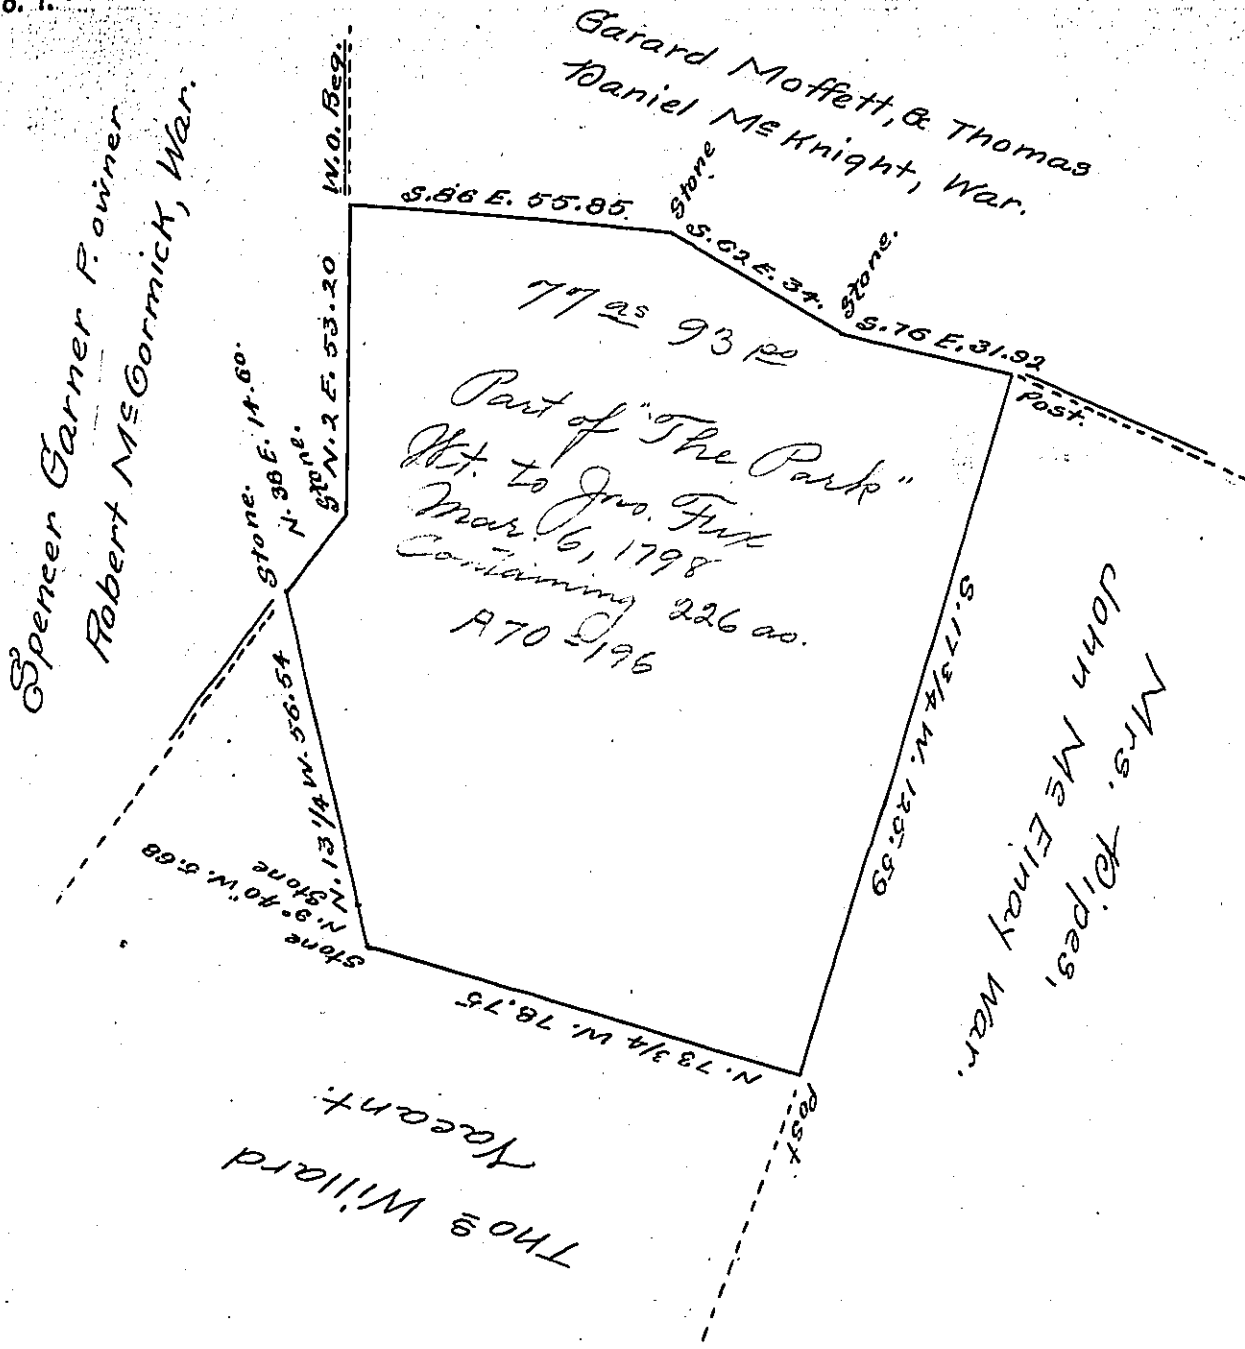 Garard Moffett, & Thomas
Daniel McKnight, War.
Spencer Garner P. owner
Robert McGormick, War.
W.O. Beg.
S. 86 E. 55.85
Stone
S. 62 E. 34.
Stone.
S. 76 E. 31.92
Post.
N. 2 E. 53.20
Stone.
N. 38 E. 14.60.
Stone.
77 as 93 po
Part of "The Park"
Wt. to Jno. Fix
Mar. 6, 1798
Containing 226 ac.
A70-196
S. 17 3/4 W. 125.59
Mrs. Pipes,
John McElnay War.
N. 13 1/4 W. 56.54
Stone
N. 9° 40" W. 5.68
Stone
N. 73 3/4 W. 78.75
Post.
Vacant.
Thos Willard